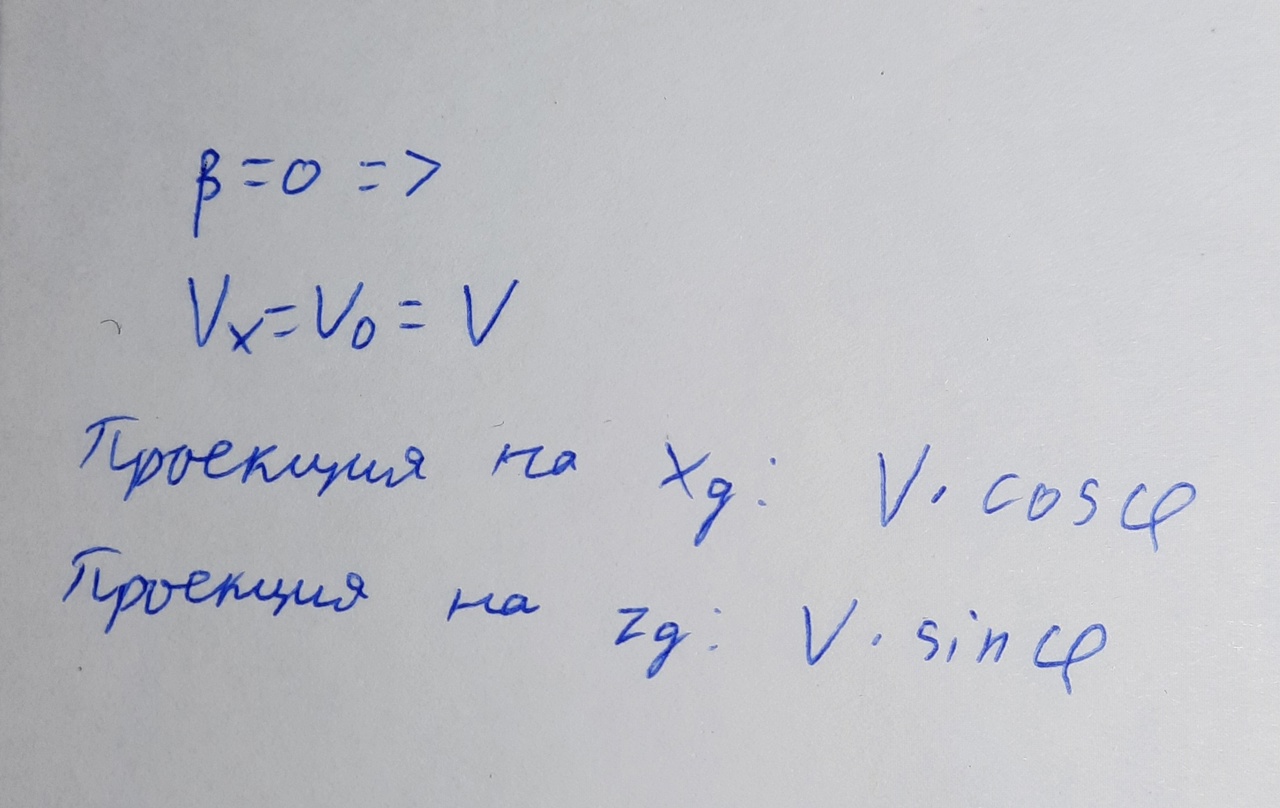 β=0 =>
Vx=V0=V
Проекция на xg: V·cosφ
Проекция на zg: V·sinφ